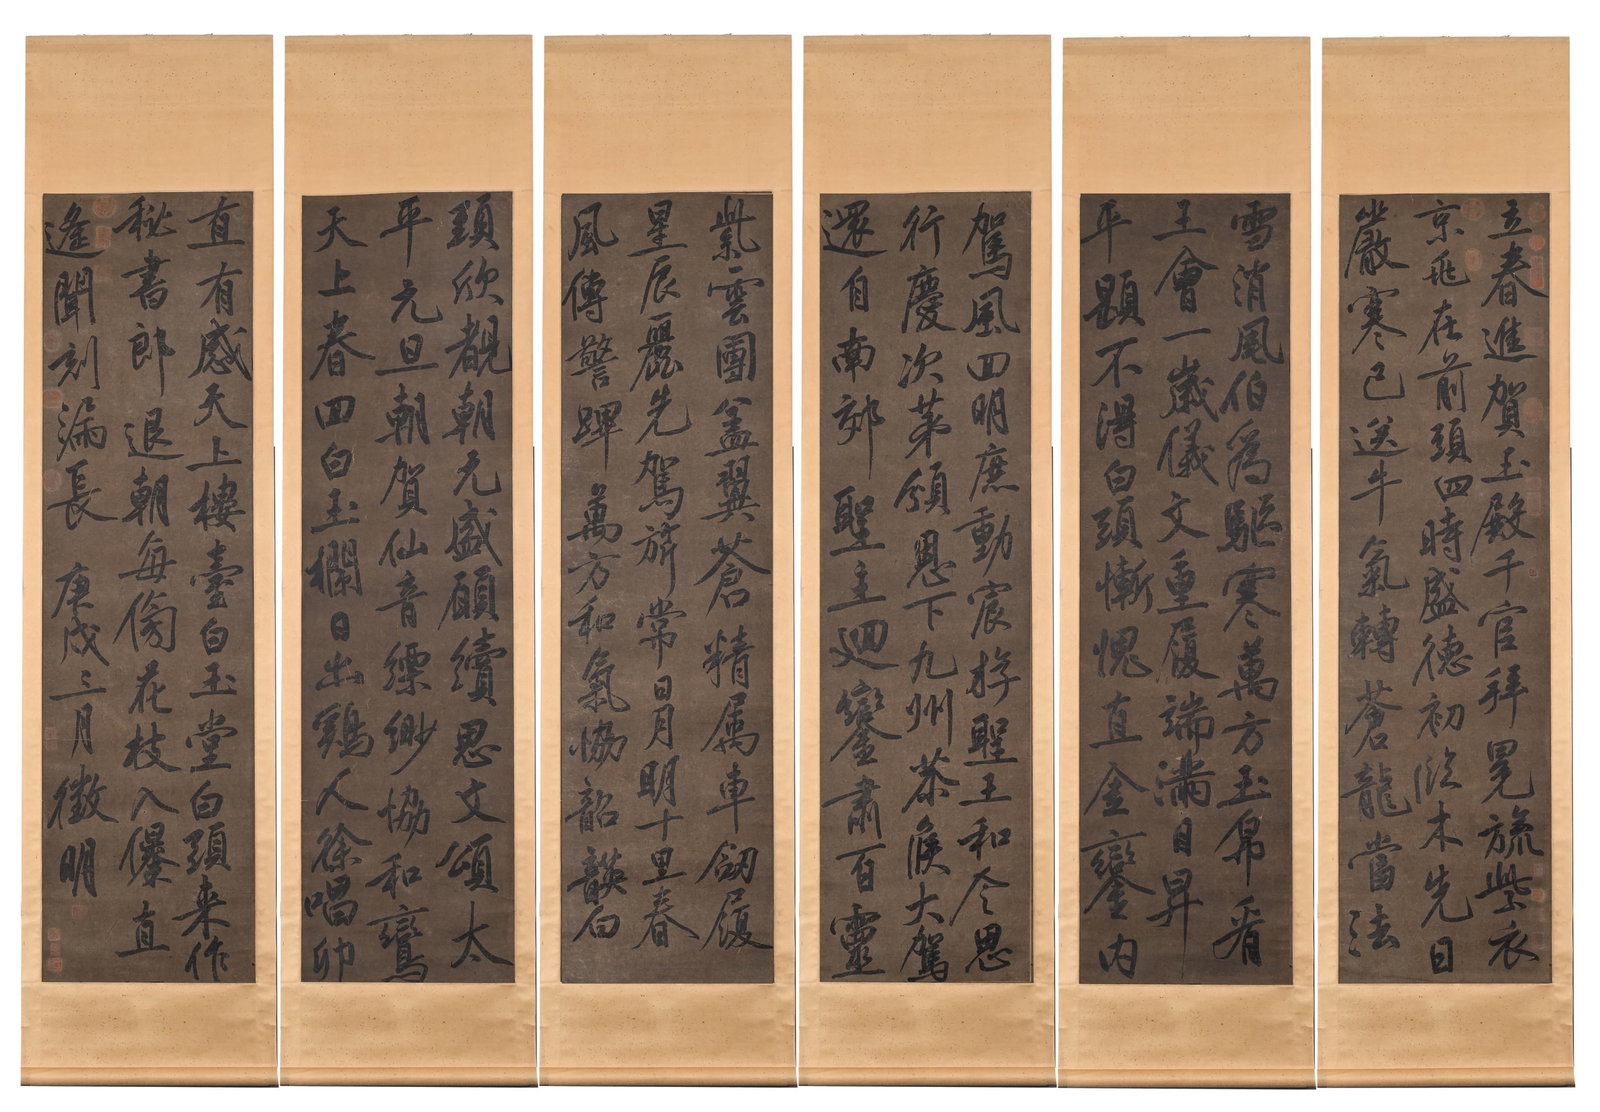 立春進賀玉殿千官拜冕旒紫衣
京兆在前頭四時盛德初臨木先日
嚴寒已送牛氣轉蒼龍當法
雪消風伯為驅寒萬方玉帛看
王會一歲儀文重履端滿目昇
平題不得白頭慚愧直金鑾內
駕風回明庶動宸斿聖主和令思
行慶次第頒恩下九州恭候大駕
還自南郊聖主迴鑾肅百靈
紫雲團蓋翼蒼精屬車劒履
星辰麗先駕旂常日月明十里春
風傳警蹕萬方和氣協韶韺白
頭欣覩朝元盛願續思文頌太
平元旦朝賀仙音縹緲協和鸞
天上春回白玉欄日出鷄人徐唱卯
直有感天上樓臺白玉堂白頭來作
秘書郎退朝每傍花枝入儤直
遙聞刻漏長 庚戌三月徵明